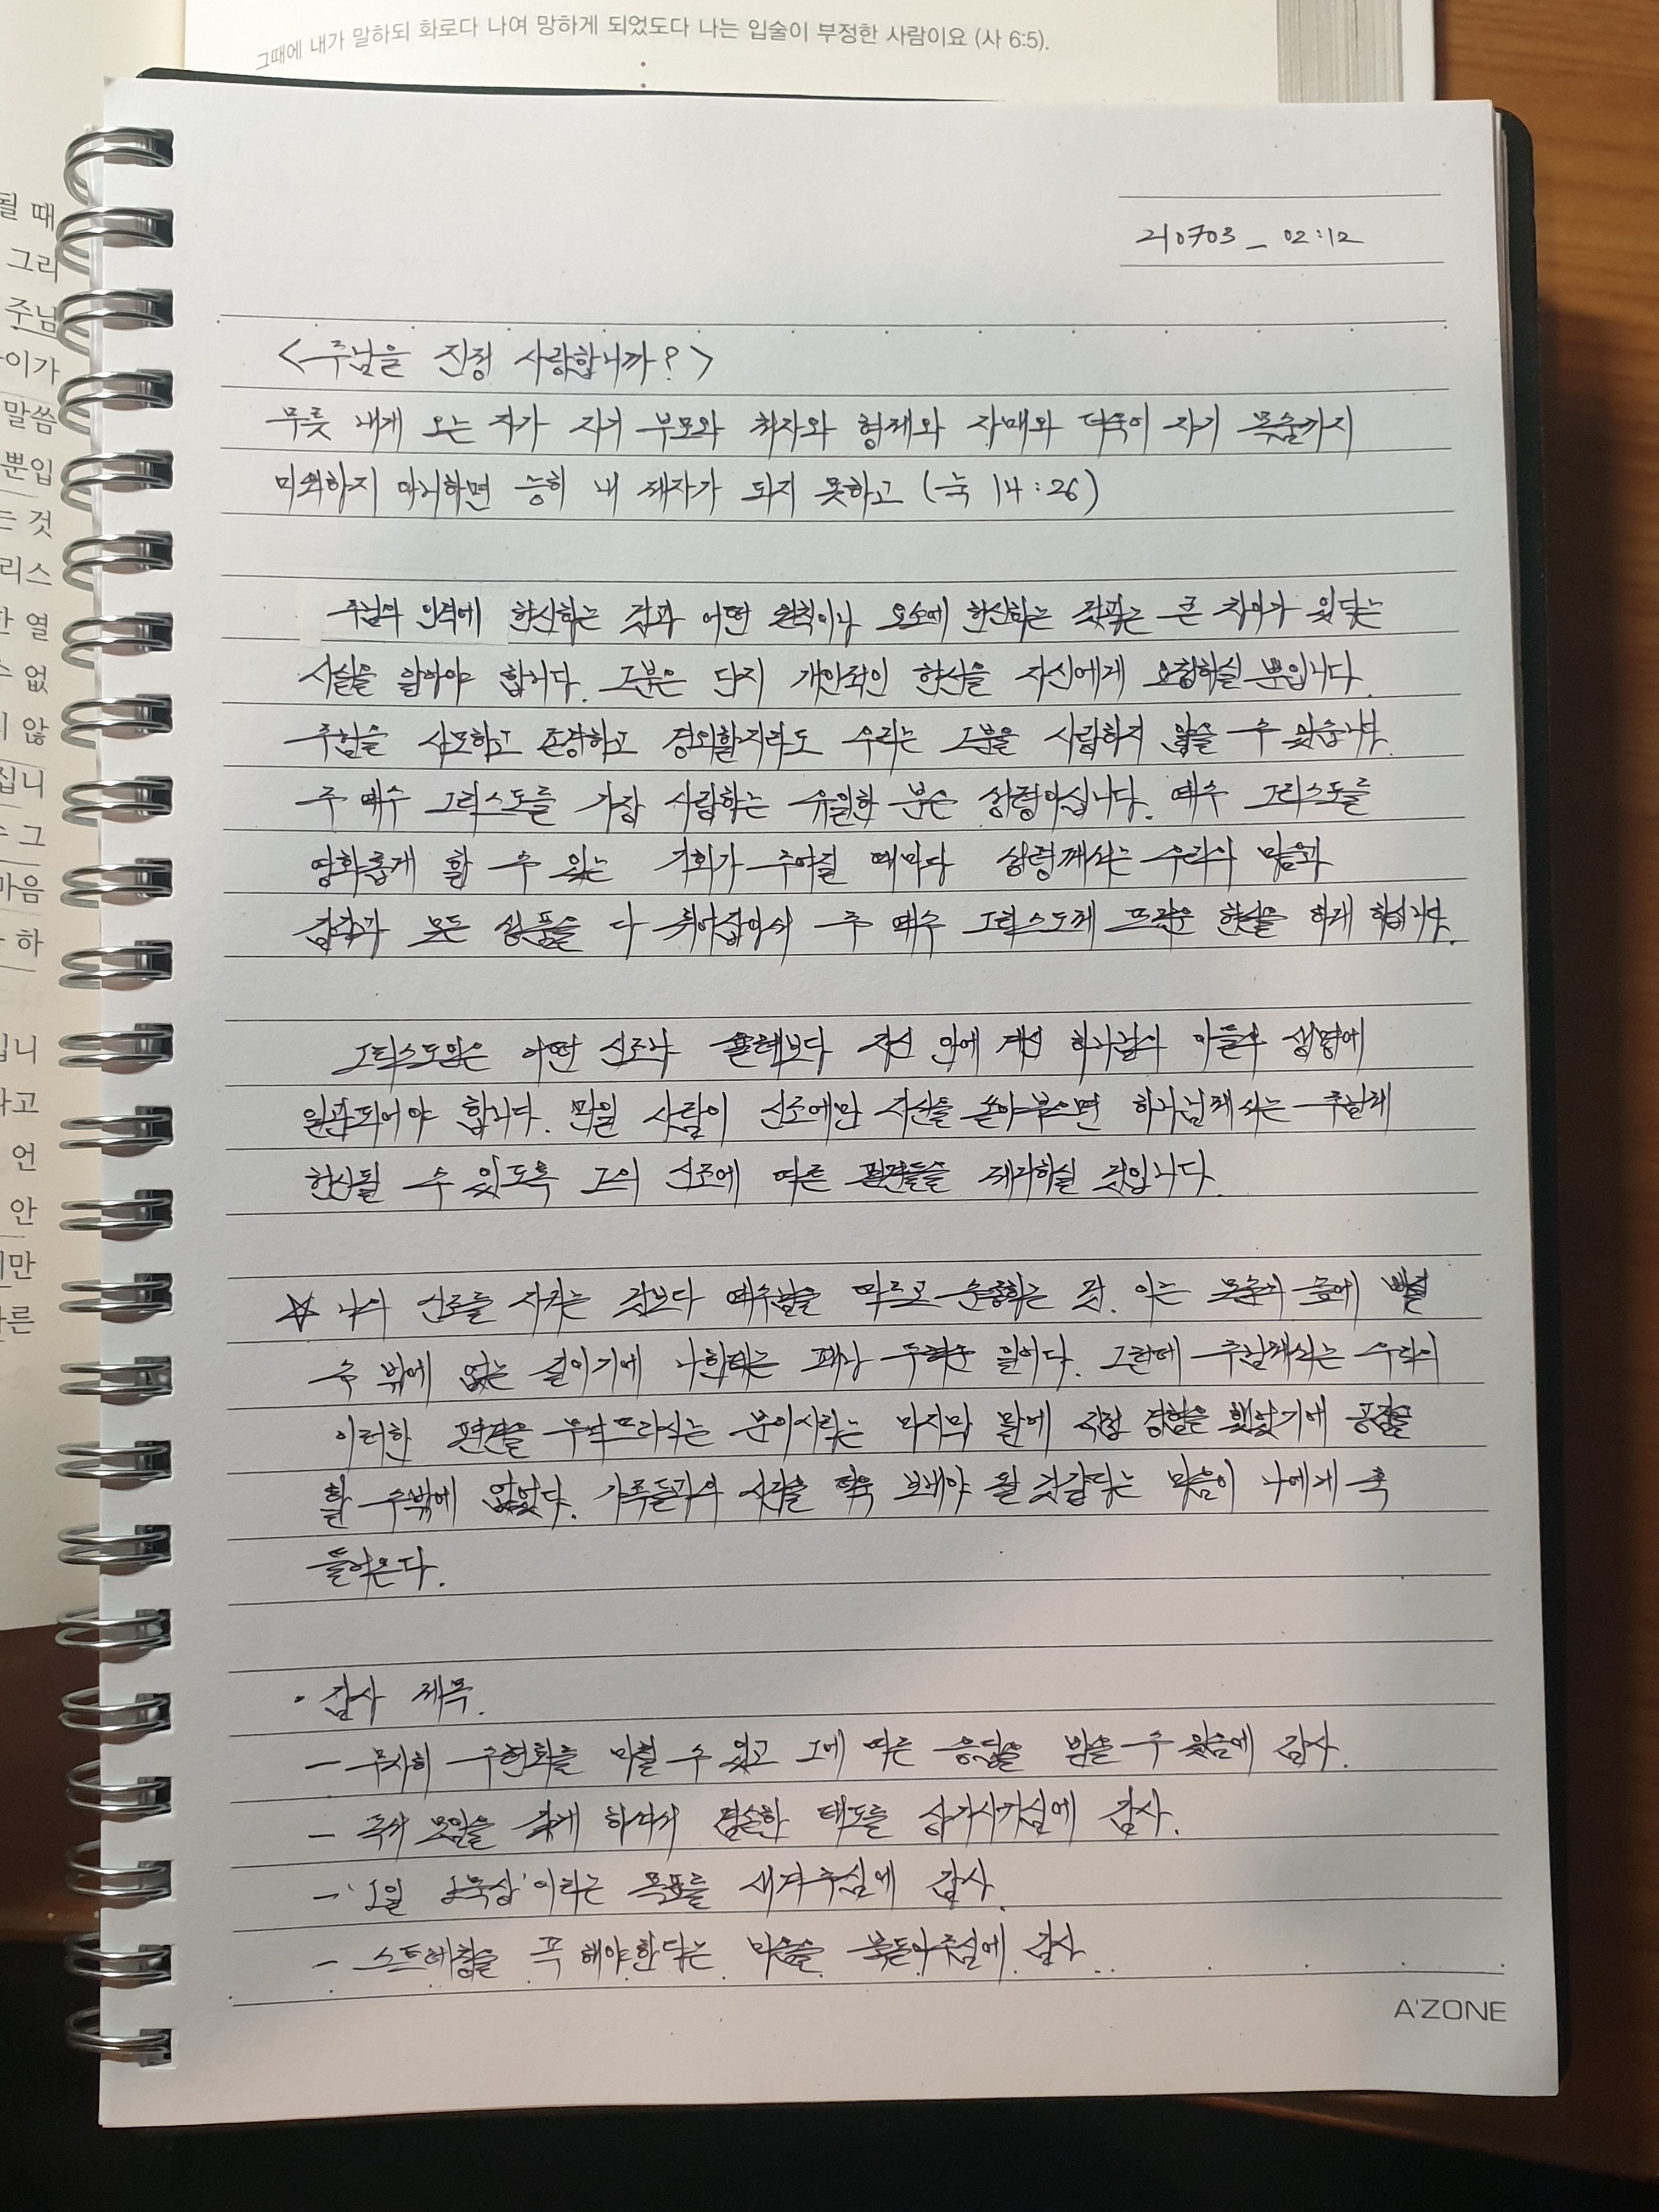 그때에 내가 말하되 화로다 나여 망하게 되었도다 나는 입술이 부정한 사람이요 (사 6:5).
210703 _ 02:12
<주님을 진정 사랑합니까?>
무릇 내게 오는 자가 자기 부모와 처자와 형제와 자매와 더욱이 자기 목숨까지
미워하지 아니하면 능히 내 제자가 되지 못하고 (눅 14:26)
주님의 인격에 헌신하는 것과 어떤 원칙이나 요소에 헌신하는 것과는 큰 차이가 있다는
사실을 알아야 합니다. 그분은 단지 개인적인 헌신을 자신에게 요청하실 뿐입니다.
주님을 사모하고 존경하고 경외할지라도 우리는 그분을 사랍하지 않을 수 있습니다.
주 예수 그리스도를 가장 사랍하는 유일한 분은 성령이십니다. 예수 그리스도를
영화롭게 할 수 있는 기회가 주어질 때마다 성령께서는 우리의 마음과
감각과 모든 성품을 다 취어잡아서 주 예수 그리스도께 뜨거운 헌신을 하게 하십니다.
그리스도인은 어떤 신조나 보다 자신 안에 계신 하나님의 아들의 생명에
일관되어야 합니다. 만일 사람이 신조에만 자신을 쏟아부으면 하나님께서는 주님께
헌신될 수 있도록 그의 신조에 따른 편견들을 제거하실 것입니다.
☆ 나의 신조를 지키는 것보다 예수님을 따르고 순종하는 것. 이는 숲에 빠질
수 밖에 없는 길이기에 나한테는 꽤나 두려운 일이다. 그런데 주님께서는 우리의
이러한 편견을 무너뜨리시는 분이시라는 마지막 말에 직접 경험을 했었기에 공감을
할 수밖에 없었다. 가족들과의 시간을 더욱 보내야 될 것같다는 마음이 나에게 훅
들어온다.
• 감사 제목.
- 무사히 수련회를 마칠 수 있고 그에 따른 응답을 받을 수 있음에 감사.
- 독서 모임을 갖게 하셔서 겸손한 태도를 상기시키심에 감사.
- '1일 1묵상'이라는 목표를 새겨주심에 감사.
- 스트레칭을 꼭 해야한다는 마음을 북돋아주심에 감사.
A'ZONE
될 때
그리
주님
이가
말씀
뿐입
는 것
리스
한 열
수 없
지 않
십니
그
마음
하
입니
라고
언
안
지만
다른